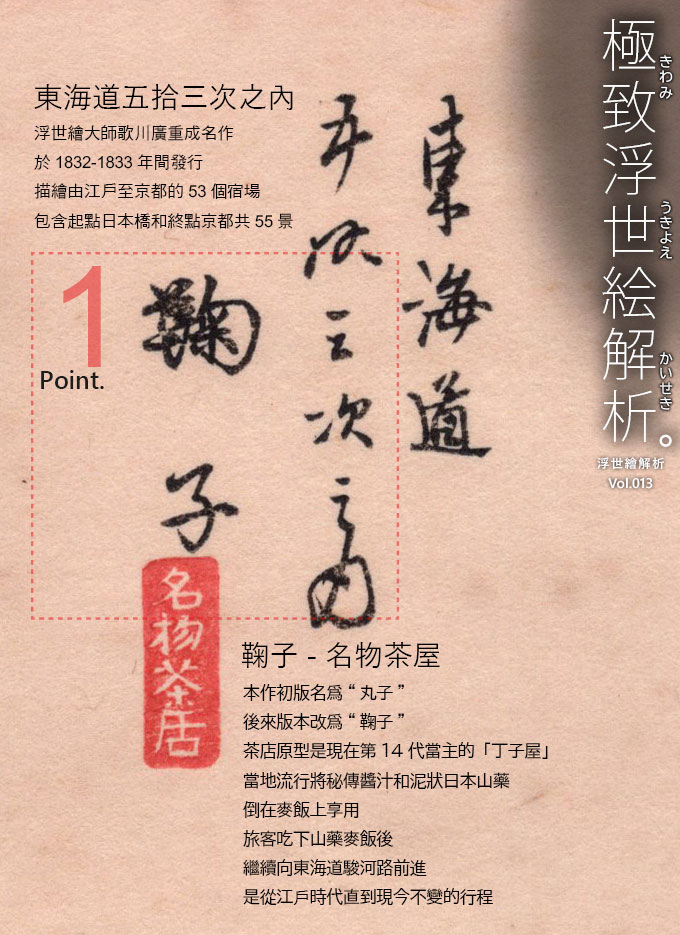 極致浮世絵解析。
きわみ
うきよえ
かいせき
浮世繪解析
Vol.013
東海道五拾三次之內
浮世繪大師歌川廣重成名作
於 1832-1833 年間發行
描繪由江戶至京都的 53 個宿場
包含起點日本橋和終點京都共 55 景
東海道
五拾三次之内
鞠子
名物茶店
1
Point.
鞠子 - 名物茶屋
本作初版名爲 “ 丸子 ”
後來版本改爲 “ 鞠子 ”
茶店原型是現在第 14 代當主的「丁子屋」
當地流行將秘傳醬汁和泥狀日本山藥
倒在麥飯上享用
旅客吃下山藥麥飯後
繼續向東海道駿河路前進
是從江戶時代直到現今不變的行程